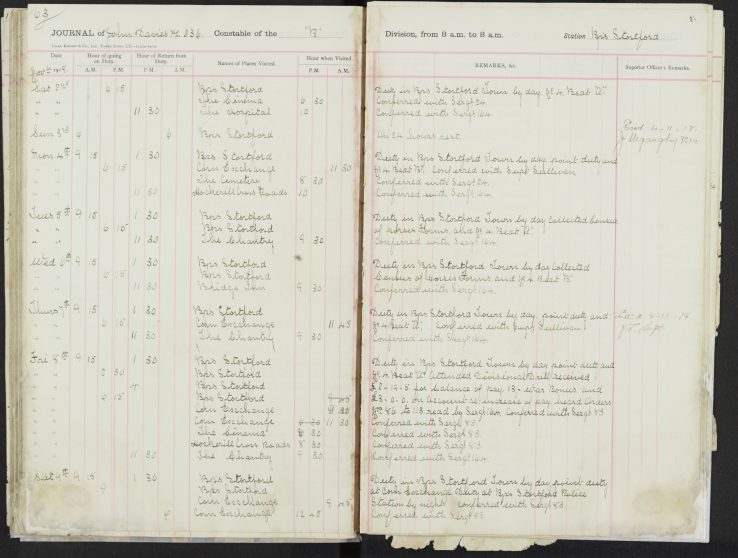 63
JOURNAL of John Davies PC 236 Constable of the "B"
Date Hour of going on Duty. Hour of Return from Duty. Names of Places Visited. Hour when Visited.
A.M. P.M. P.M. A.M. P.M. A.M.
Sat 2nd 6 15 Bps Stortford
" " The Cinema 6 30
" " 11 30 The Hospital 10
Sun 3rd 6 6 Bps Stortford
Mon 4th 9 15 1 30 Bps Stortford
" " 6 15 Corn Exchange 11 30
" " The Cemetery 8 30
" " 11 30 Hockerill Cross Roads 10
Tues 5th 9 15 1 30 Bps Stortford
" " 6 15 Bps Stortford
" " 11 30 The Chantry 9 30
Wed 6th 9 15 1 30 Bps Stortford
" " 6 15 Bps Stortford
" " 11 30 Bridge Inn 9 30
Thurs 7th 9 15 1 30 Bps Stortford
" " 6 15 Corn Exchange 11 45
" " 11 30 The Chantry 9 30
Fri 8th 9 15 1 30 Bps Stortford
" " 2 30 Bps Stortford
" " Bps Stortford
" " 6 15 Bps Stortford
" " Corn Exchange
" " Corn Exchange 11 30
" " The Cinema 6 30
" " Hockerill Cross Roads 8 30
" " 11 30 The Chantry 9 30
Sat 9th 9 15 1 30 Bps Stortford
" " 9 Bps Stortford
" " Corn Exchange 9 45
" " 6 Corn Exchange 12 45
Division, from 8 a.m. to 8 a.m. Station Bps Stortford
REMARKS, &c. Superior Officer's Remarks.
Duty in Bps Stortford Town by day. gr 4. Beat "A".
Conferred with Sergt 24.
Conferred with Sergt 164.
On 24 hours rest.
Good 4-11-18
Duty in Bps Stortford Town by day point duty and
gr 4 Beat "B". Conferred with Supt Sullivan
Conferred with Sergt 24.
Conferred with Sergt 164.
Duty in Bps Stortford Town by day collected Census
of Horses Forms and gr 4. Beat "A".
Conferred with Sergt 164.
Duty in Bps Stortford Town by day collected
Census of Horses Forms and gr 4 Beat "B"
Conferred with Sergt 164.
Duty in Bps Stortford Town by day. point duty and
gr 4 Beat "A". Conferred with Supt Sullivan
Conferred with Sergt 164.
8-11-18
Supt
Duty in Bps Stortford Town by day point duty and
gr 4. Beat "A" Attended Divisional Drill received
£2-19-5 for balance of pay. 13/- War Bonus and
£3-0-0 on Account re increase of pay. heard Orders
Nos 86 to 113 read by Sergt 164, Conferred with Sergt 83
Conferred with Sergt 83.
Conferred with Sergt 83.
Conferred with Sergt 83.
Conferred with Sergt 164.
Duty in Bps Stortford Town by day point duty
at Corn Exchange Duty at Bps Stortford Police
Station by night conferred with Sergt 83.
Conferred with Sergt 83